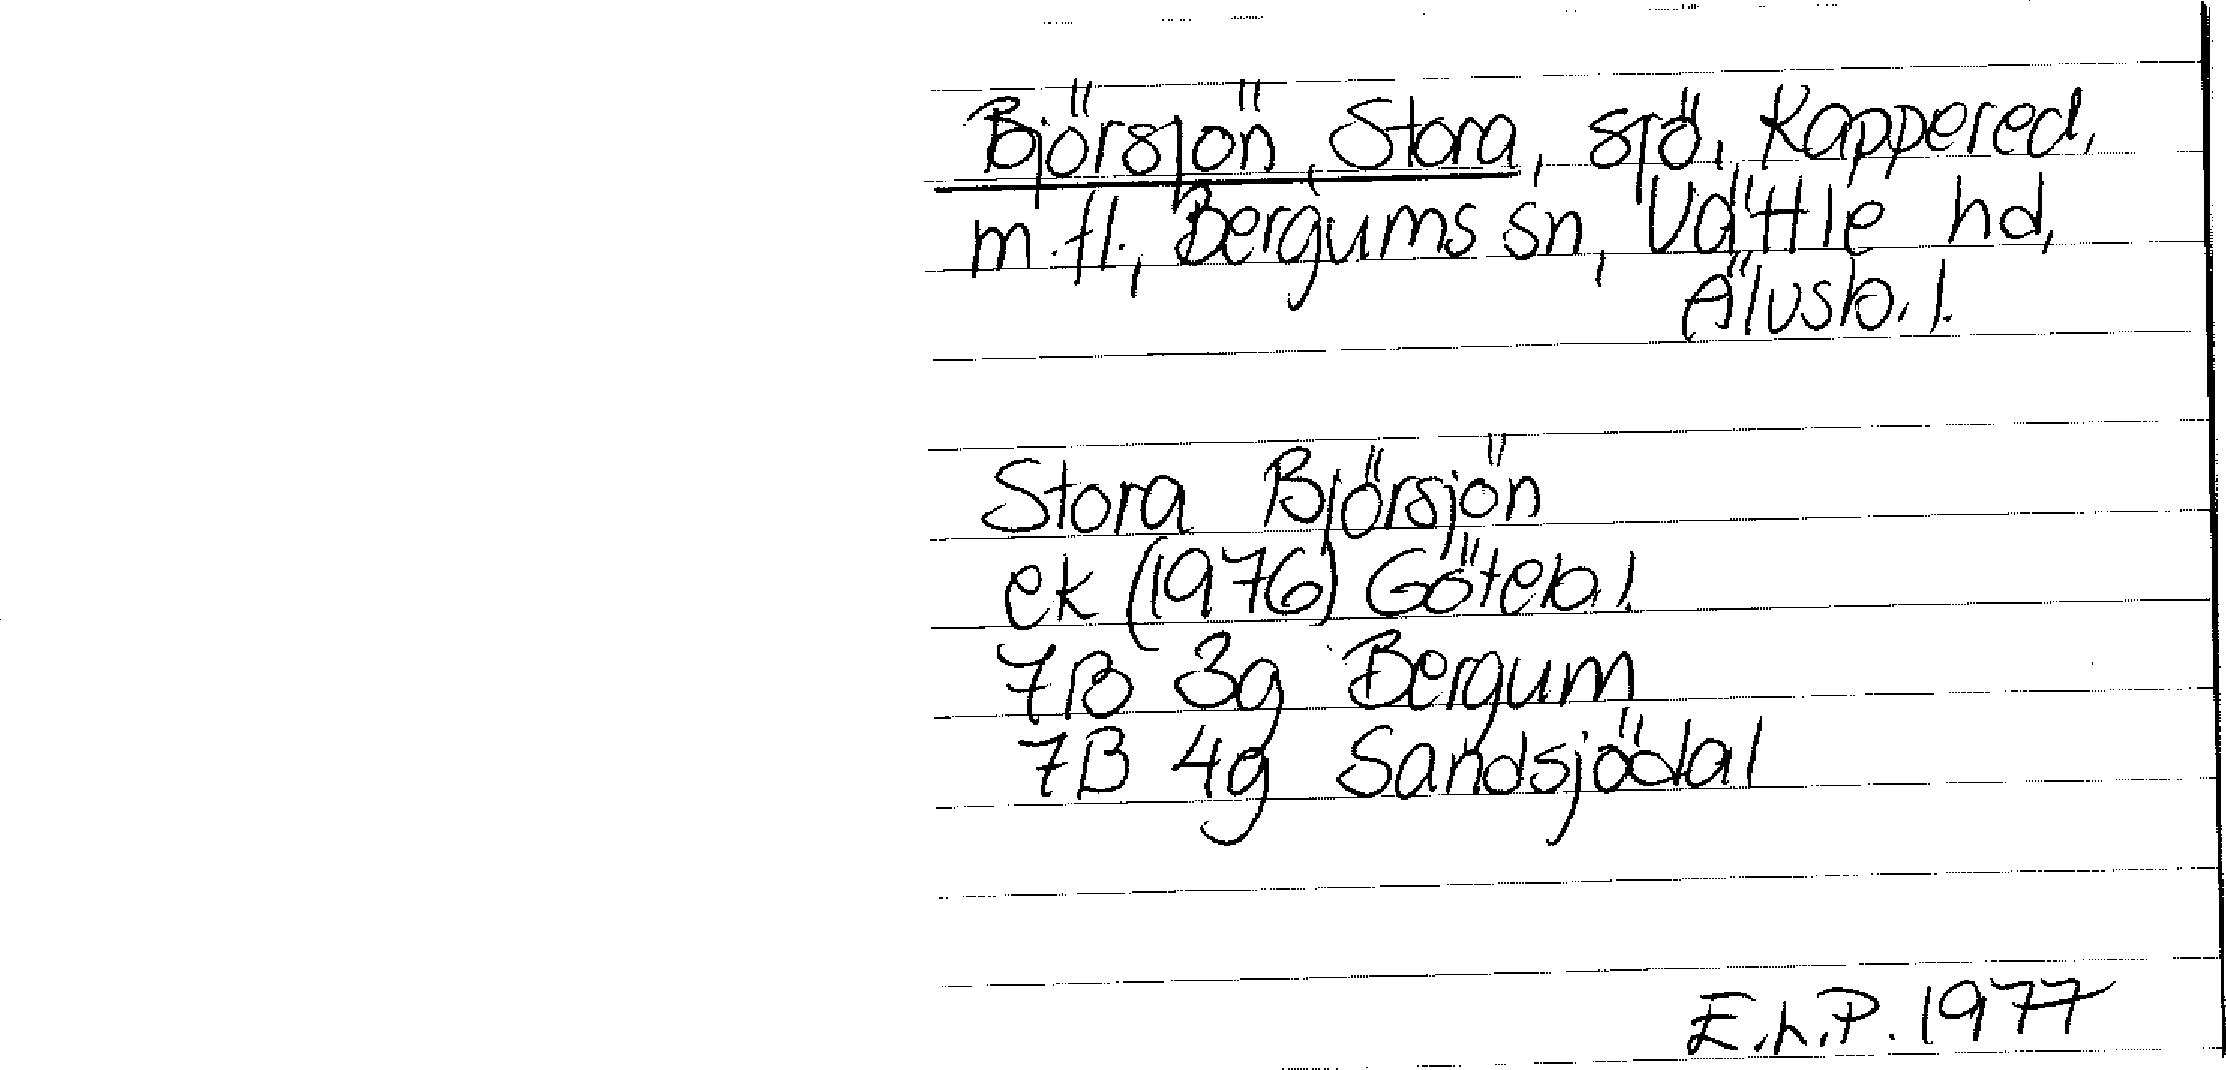 Björsjön, Stora, sjö, Kappered,
m.fl., Bergums sn, Vättle hd,
Älvsb. l.
Stora Björsjön
ek (1976) Göteb. l.
7B 3g Bergum
7B 4g Sandsjödal
E.L.P. 1977